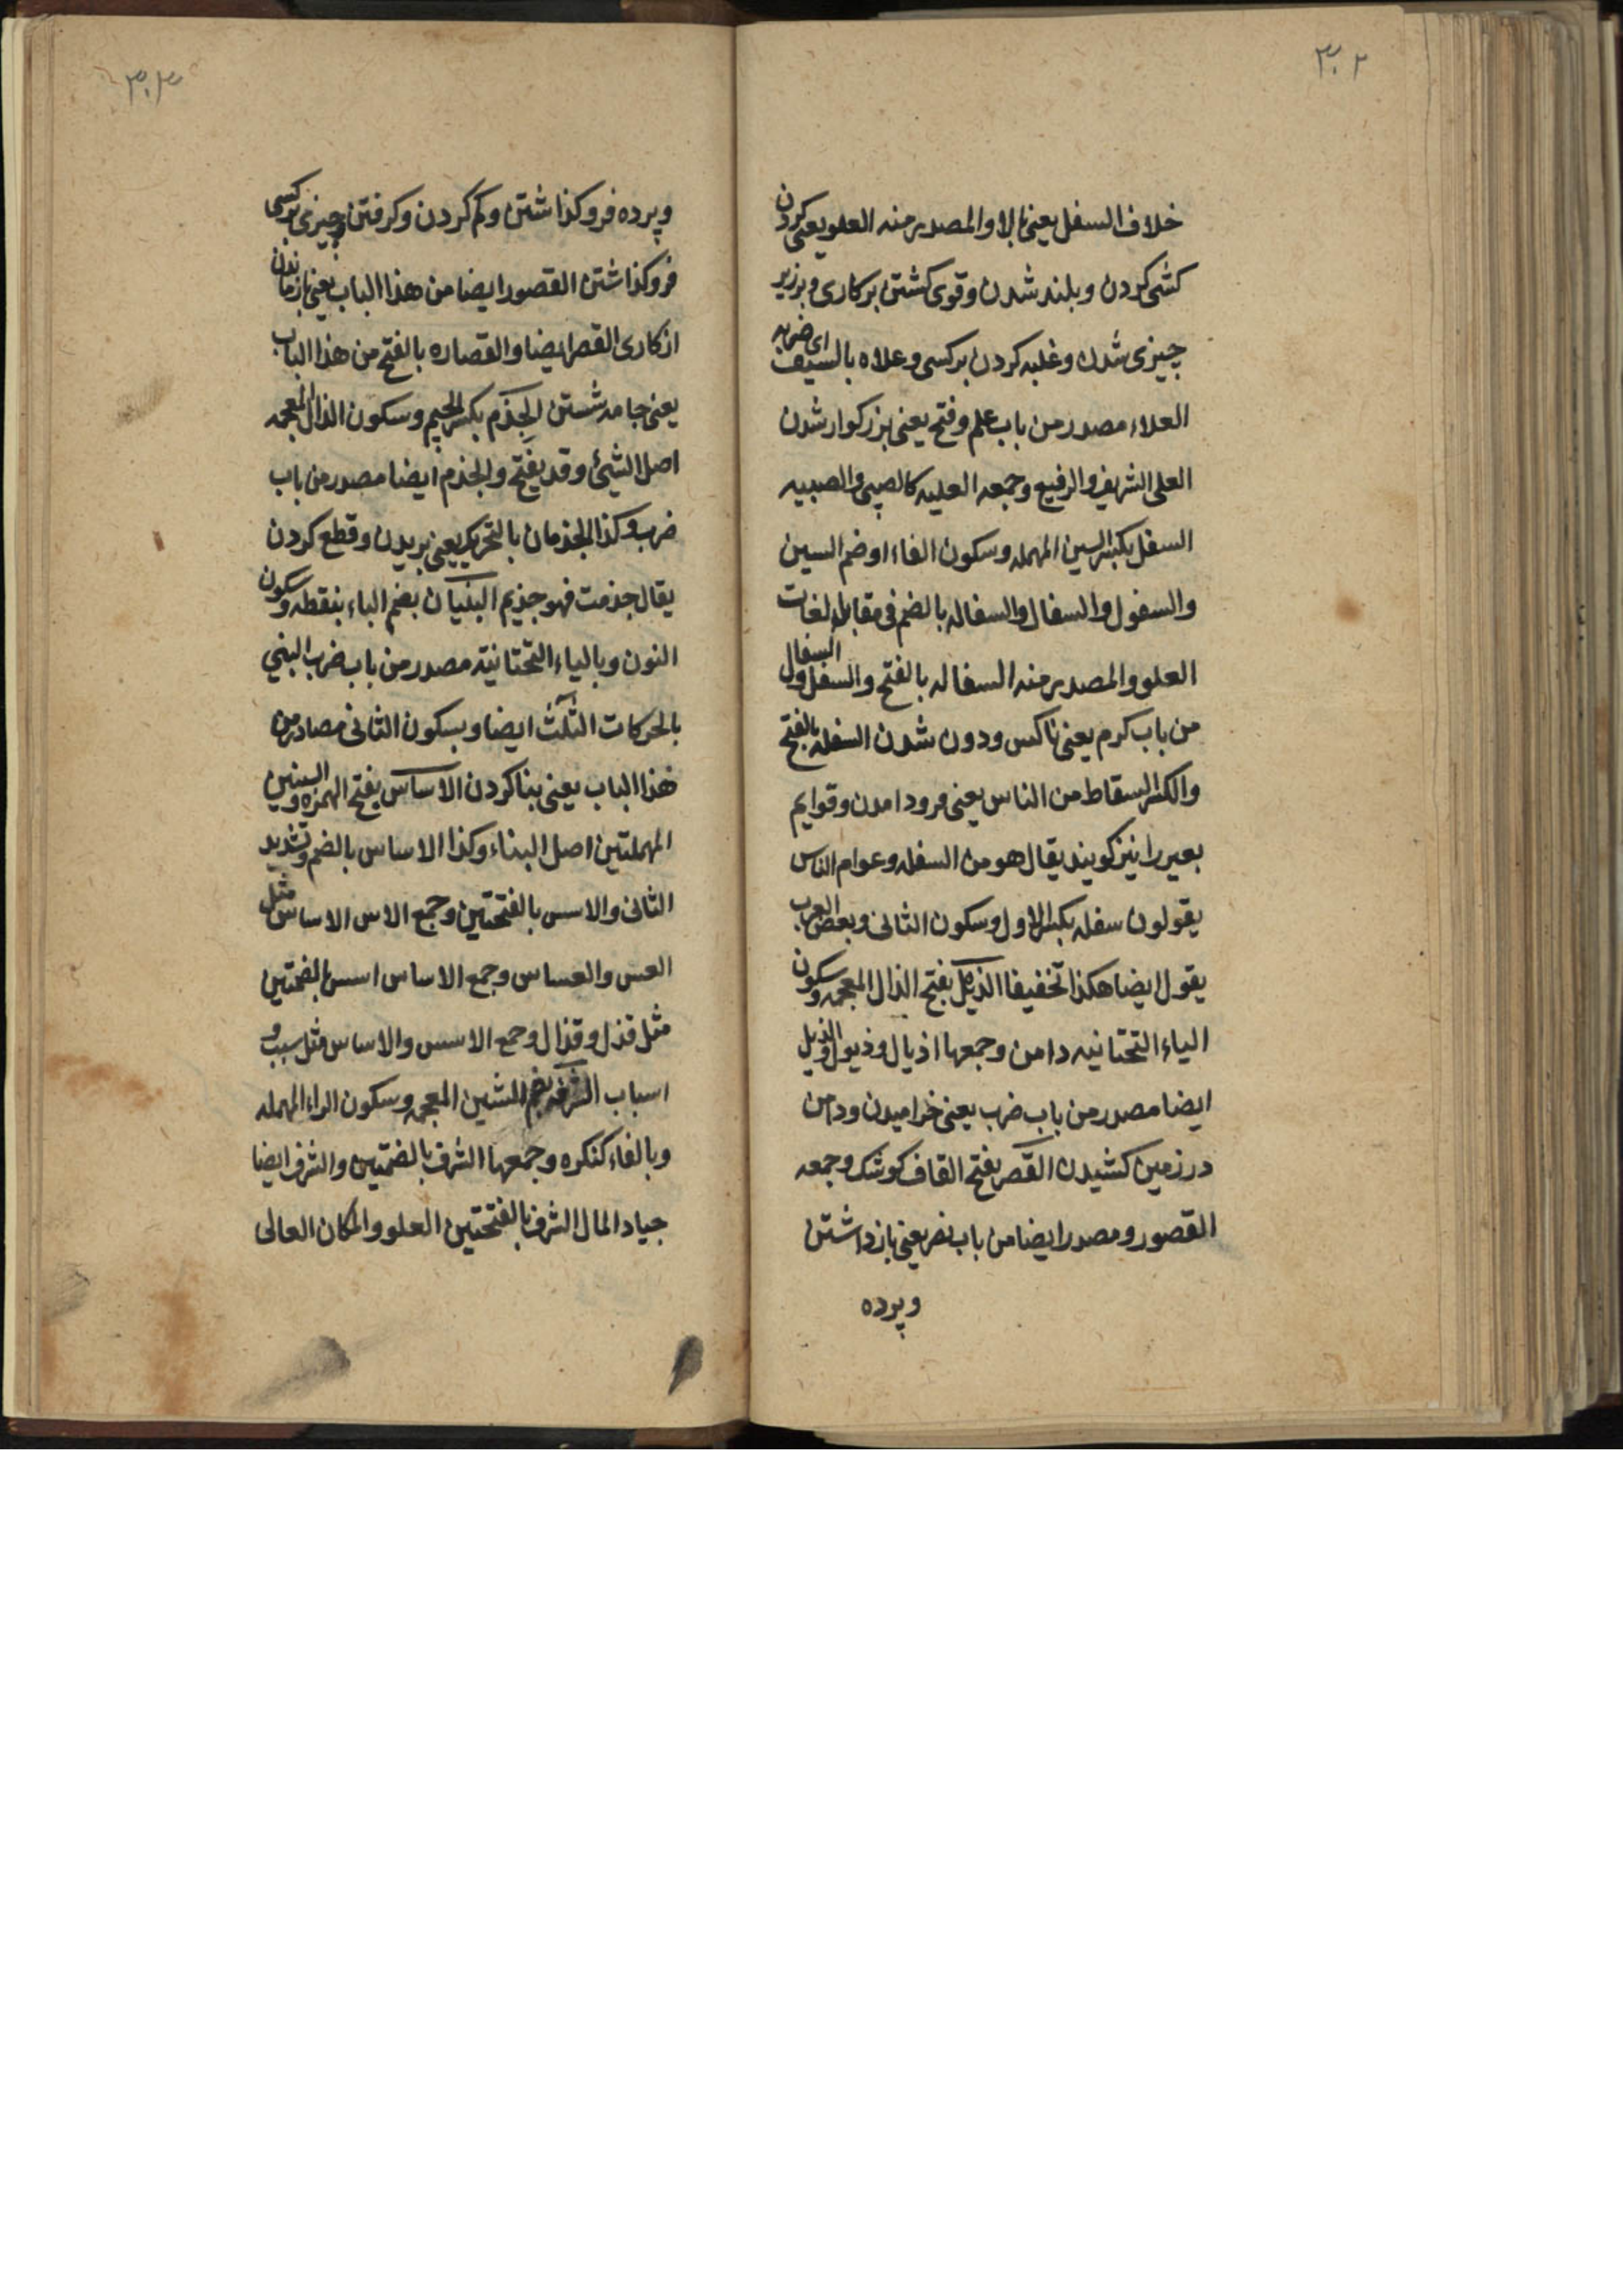 ٣٠٢
خلاف السفل یعنی بالا والمصدر منه العلو یعنی کردن
کشی کردن و بلند شدن و قوی کشتن بر کاری و بر زیر
چیزی شدن و غلبه کردن بر کسی و علاه بالسیف ای ضربه
العلاء مصدر من باب علم و فتح یعنی بزرکوار شدن
العلی الشریف والرفیع وجمعه العلیه کالصبی والصبیه
السفل بکسر السین المهمله وسکون الفاء او ضم السین
والسفول والسفال والسفاله بالضم فی مقابله لغات
العلو والمصدر منه السفاله بالفتح والسفل والسفال
من باب کرم یعنی ناکس و دون شدن السفله بالفتح
والکسر السقاط من الناس یعنی فرود امدن و قوایم
بعیر را نیز کویند یقال هو من السفله وعوام الناس
یقولون سفله بکسر الاول وسکون الثانی وبعض العرب
یقول ایضا هکذا تخفیفا الذیل بفتح الذال المعجمه وسکون
الیاء التحتانیه دامن وجمعها اذیال وذیول والذیل
ایضا مصدر من باب ضرب یعنی خرامیدن ودامن
در زمین کشیدن القصر بفتح القاف کوشک وجمعه
القصور ومصدر ایضا من باب نصر یعنی بازداشتن
وپرده
٣٠٣
وپرده فرو کذاشتن وکم کردن وکرفتن چیزی بر کسی
فرو کذاشتن القصور ایضا من هذا الباب یعنی بازماندن
از کاری القصر ایضا والقصاره بالفتح من هذا الباب
یعنی جامه شستن الجذم بکسر الجیم وسکون الذال المعجمه
اصل الشیئ وقد یفتح والجذم ایضا مصدر من باب
ضرب وکذا الجذمان بالتحریک یعنی بریدن وقطع کردن
یقال جذمت فهو جذیم البنیان بضم الباء بنقطه وسکون
النون وبالیاء التحتانیة مصدر من باب ضرب البنی
بالحرکات الثلث ایضا وبسکون الثانی مصادر من
هذا الباب یعنی بنا کردن الاساس بفتح الهمزه والسینین
المهملتین اصل البناء وکذا الاساس بالضم وتشدید
الثانی والاسس بالفتحتین وجمع الاس الاساس مثل
العس والعساس وجمع الاساس اسس بالضمتین
مثل قذل وقذال وجمع الاسس والاساس مثل سبب و
اسباب الشرفه بضم الشین المعجمه وسکون الراء المهمله
وبالفاء کنکره وجمعها الشرف بالضمتین والشرف ایضا
جیاد المال الشرف بالفتحتین العلو والمکان العالی